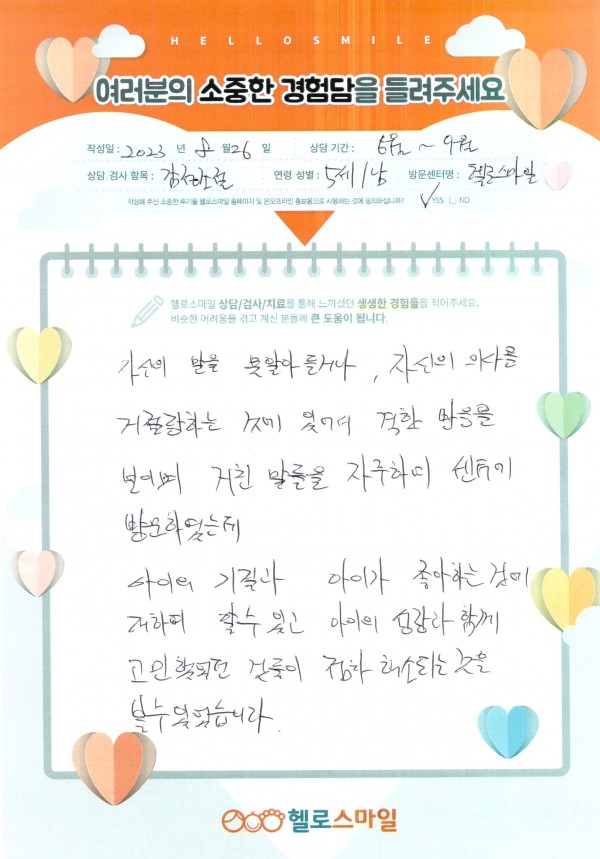 HELLOSMILE
여러분의 소중한 경험담을 들려주세요
작성일 : 2023 년 8 월 26 일 상담 기간 : 6월 ~ 9월
상담, 검사 항목 : 감정조절 연령 성별 : 5세/남 방문센터명 : 헬로스마일
작성해 주신 소중한 후기를 헬로스마일 홈페이지 및 온오프라인 홍보용으로 사용하는 것에 동의하십니까? ✓YES □ NO
헬로스마일 상담/검사/치료를 통해 느끼셨던 생생한 경험들을 적어주세요.
비슷한 어려움을 겪고 계신 분들께 큰 도움이 됩니다.
자신의 말을 못알아 듣거나, 자신의 의사를
거절당하는 것에 있어서 격한 반응을
보이며 거친 말들을 자주하여 센터에
방문하였는데
아이의 기질과 아이가 좋아하는 것에
대하여 알수 있고 아이의 성장과 함께
고민했던 것들이 점차 해소되는 것을
볼수 있었습니다.
헬로스마일